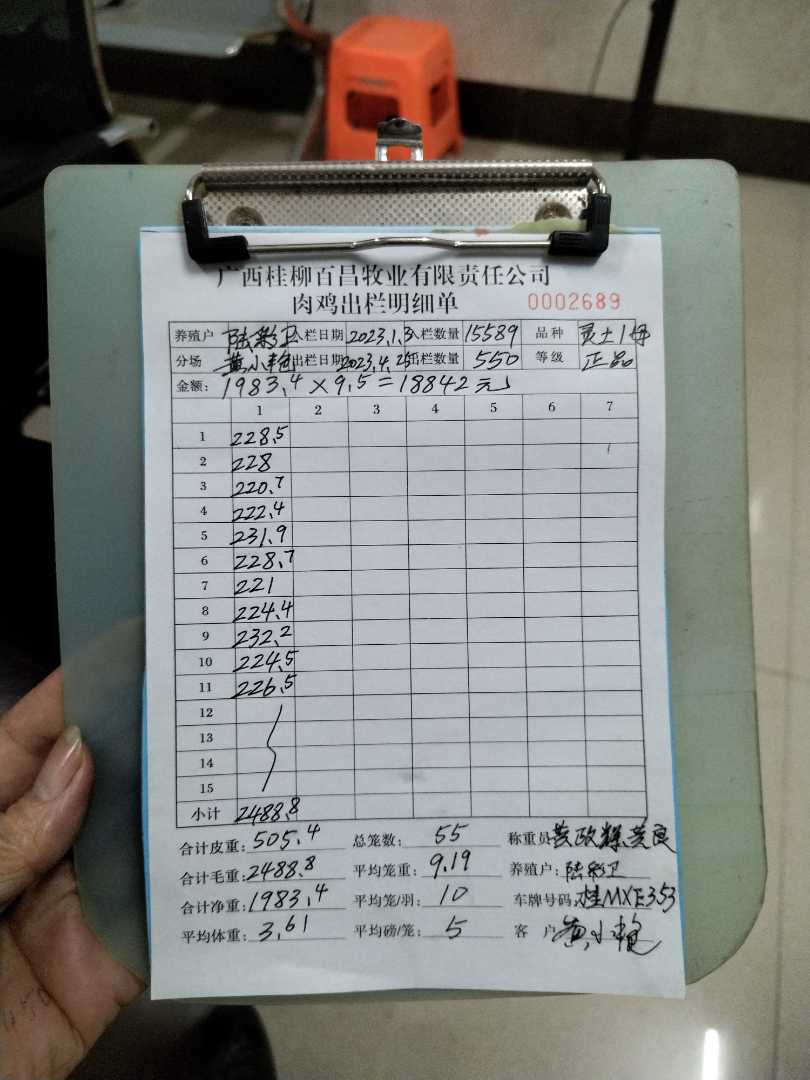 广西桂柳百昌牧业有限责任公司
肉鸡出栏明细单 0002689
养殖户 陆彩卫 入栏日期 2023.1.3 入栏数量 15589 品种 灵土1母
分场 黄小艳 出栏日期 2023.4.25 出栏数量 550 等级 正品
金额: 1983.4×9.5=18842元
1 2 3 4 5 6 7
1 228.5
2 228
3 220.7
4 222.4
5 231.9
6 228.7
7 221
8 224.4
9 232.2
10 224.5
11 226.5
12
13
14
15
小计 2488.8
合计皮重: 505.4 总笼数: 55 称重员 黄政辉 黄良
合计毛重: 2488.8 平均笼重: 9.19 养殖户: 陆彩卫
合计净重: 1983.4 平均笼/羽: 10 车牌号码: 桂MXE353
平均体重: 3.61 平均磅/笼: 5 客户 黄小艳